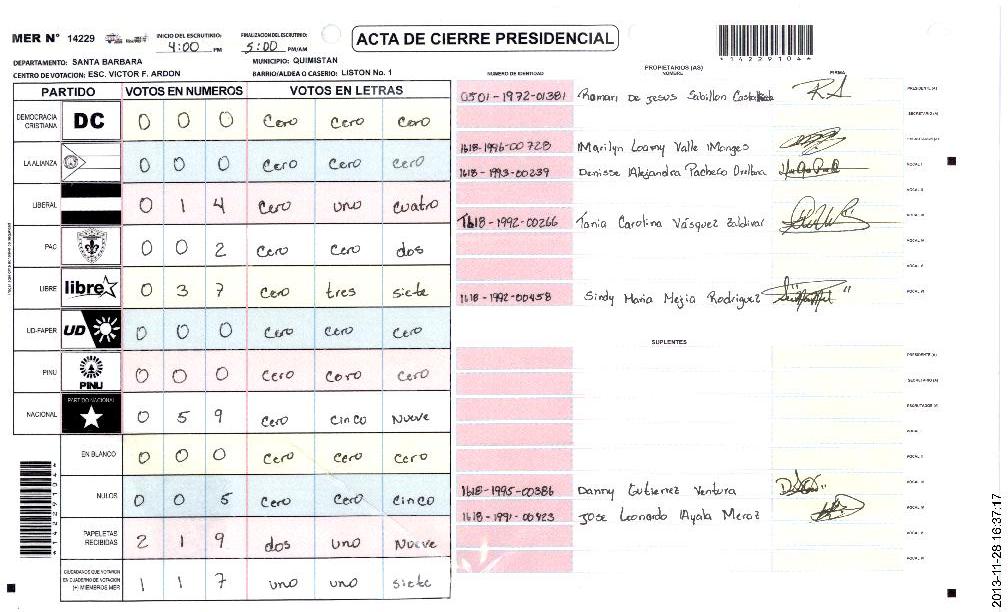 MER Nº 14229
INICIO DEL ESCRUTINIO: 4:00 PM
FINALIZACION DEL ESCRUTINIO: 5:00 PM/AM
ACTA DE CIERRE PRESIDENCIAL
*14229104*
DEPARTAMENTO: SANTA BARBARA
MUNICIPIO: QUIMISTAN
CENTRO DE VOTACION: ESC. VICTOR F. ARDON
BARRIO/ALDEA O CASERIO: LISTON No. 1
PARTIDO VOTOS EN NUMEROS VOTOS EN LETRAS
DEMOCRACIA CRISTIANA DC 0 0 0 Cero Cero Cero
LA ALIANZA 0 0 0 Cero Cero Cero
LIBERAL 0 1 4 Cero uno cuatro
PAC 0 0 2 Cero Cero dos
LIBRE libre 0 3 7 Cero tres siete
UD-FAPER UD 0 0 0 Cero Cero Cero
PINU PINU 0 0 0 Cero Cero Cero
NACIONAL PARTIDO NACIONAL 0 5 9 Cero Cinco Nueve
EN BLANCO 0 0 0 Cero Cero Cero
NULOS 0 0 5 Cero Cero Cinco
PAPELETAS RECIBIDAS 2 1 9 dos uno Nueve
CIUDADANOS QUE VOTARON EN CUADERNO DE VOTACION (+) MIEMBROS MER 1 1 7 uno uno siete
PROPIETARIOS (AS)
NUMERO DE IDENTIDAD NOMBRE FIRMA
0501-1972-01381 Ramari De Jesus Sabillon PRESIDENTE (A)
SECRETARIO (A)
1618-1996-00728 Marilyn Loamy Valle Monges ESCRUTADOR (A)
1618-1993-00239 Denisse Alejandra Pacheco Orellana VOCAL I
VOCAL II
1618-1992-00266 Tania Carolina Vásquez Zaldivar VOCAL III
VOCAL IV
VOCAL V
1618-1992-00458 Sindy Maria Mejia Rodriguez VOCAL VI
SUPLENTES
PRESIDENTE (A)
SECRETARIO (A)
ESCRUTADOR (A)
VOCAL I
VOCAL II
1618-1995-00386 Danny Gutierrez Ventura VOCAL III
1618-1991-00423 Jose Leonardo Ayala Meraz VOCAL IV
VOCAL V
VOCAL VI
2013-11-28 16:37:17